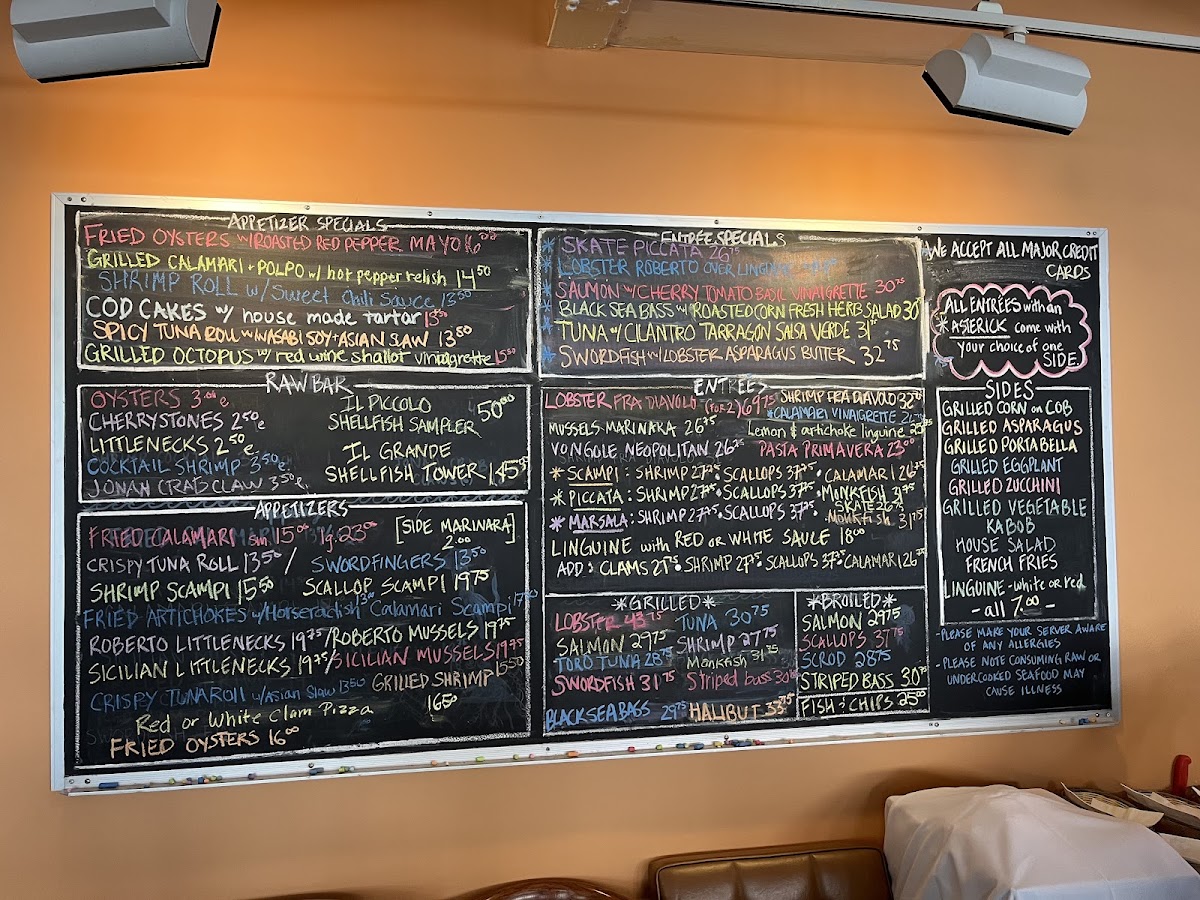 APPETIZER SPECIALS
FRIED OYSTERS w/ROASTED RED PEPPER MAYO 16.00
GRILLED CALAMARI + POLPO w/ hot pepper relish 14 50
SHRIMP ROLL w/ Sweet Chili Sauce 13 50
COD CAKES w/ house made tartar 13 50
SPICY TUNA ROLL w/WASABI SOY + ASIAN SLAW 13 50
GRILLED OCTOPUS w/ red wine shallot vinaigrette 15 50
RAW BAR
OYSTERS 3.00 e
CHERRYSTONES 2 50 e
LITTLENECKS 2 50 e
COCKTAIL SHRIMP 3 50 e.
JONAH CRAB CLAW 3 50 e.
IL PICCOLO
SHELLFISH SAMPLER 50 00
IL GRANDE
SHELLFISH TOWER 145
APPETIZERS
FRIED CALAMARI sm. 15 00 lg. 23 00 [SIDE MARINARA]
2.00
CRISPY TUNA ROLL 13 50 / SWORDFINGERS 13 50
SHRIMP SCAMPI 15 50 SCALLOP SCAMPI 19 75
FRIED ARTICHOKES w/Horseradish Calamari Scampi
ROBERTO LITTLENECKS 19 75 / ROBERTO MUSSELS 19 75
SICILIAN LITTLENECKS 19 75 / SICILIAN MUSSELS 19 75
CRISPY TUNA ROLL w/Asian Slaw 13 50 GRILLED SHRIMP 15 50
Red or White Clam Pizza 16 50
FRIED OYSTERS 16 00
ENTRÉE SPECIALS
* SKATE PICCATA 26 75
* LOBSTER ROBERTO OVER LINGUINE
* SALMON w/ CHERRY TOMATO BASIL VINAIGRETTE 30 75
* BLACK SEA BASS w/ ROASTED CORN FRESH HERB SALAD 30
* TUNA w/ CILANTRO TARRAGON SALSA VERDE 31
* SWORDFISH w/ LOBSTER ASPARAGUS BUTTER 32 75
ENTRÉES
LOBSTER FRA DIAVOLO (for 2) 69 75 SHRIMP FRA DIAVOLO 32
MUSSELS MARINARA 26 75 *CALAMARI VINAIGRETTE
Lemon & artichoke linguine
VONGOLE NEOPOLITAN 26 75 PASTA PRIMAVERA 23 00
* SCAMPI : SHRIMP 27 75 . SCALLOPS 37 75 . CALAMARI 26 75
* PICCATA : SHRIMP 27 75 . SCALLOPS 37 75 . MONKFISH 31 75
SKATE 26 75
* MARSALA : SHRIMP 27 75 . SCALLOPS 37 75 . Monkfish 31 75
LINGUINE with RED or WHITE SAUCE 18 00
ADD : CLAMS 27 75 . SHRIMP 27 75 . SCALLOPS 37 75 . CALAMARI 26 75
*GRILLED*
LOBSTER 43 75 TUNA 30 75
SALMON 29 75 SHRIMP 27 75
TORO TUNA 28 75 Monkfish 31 75
SWORDFISH 31 75 Striped bass 30
BLACK SEA BASS 29 75 HALIBUT 33 75
*BROILED*
SALMON 29 75
SCALLOPS 37 75
SCROD 28 75
STRIPED BASS 30 75
FISH & CHIPS 25 00
WE ACCEPT ALL MAJOR CREDIT
CARDS
ALL ENTRÉES with an
* ASTERICK come with
your choice of one
SIDE.
SIDES
GRILLED CORN on COB
GRILLED ASPARAGUS
GRILLED PORTABELLA
GRILLED EGGPLANT
GRILLED ZUCCHINI
GRILLED VEGETABLE
KABOB
HOUSE SALAD
FRENCH FRIES
LINGUINE - white or red
- all 7.00 -
- PLEASE MAKE YOUR SERVER AWARE
OF ANY ALLERGIES
- PLEASE NOTE CONSUMING RAW OR
UNDERCOOKED SEAFOOD MAY
CAUSE ILLNESS